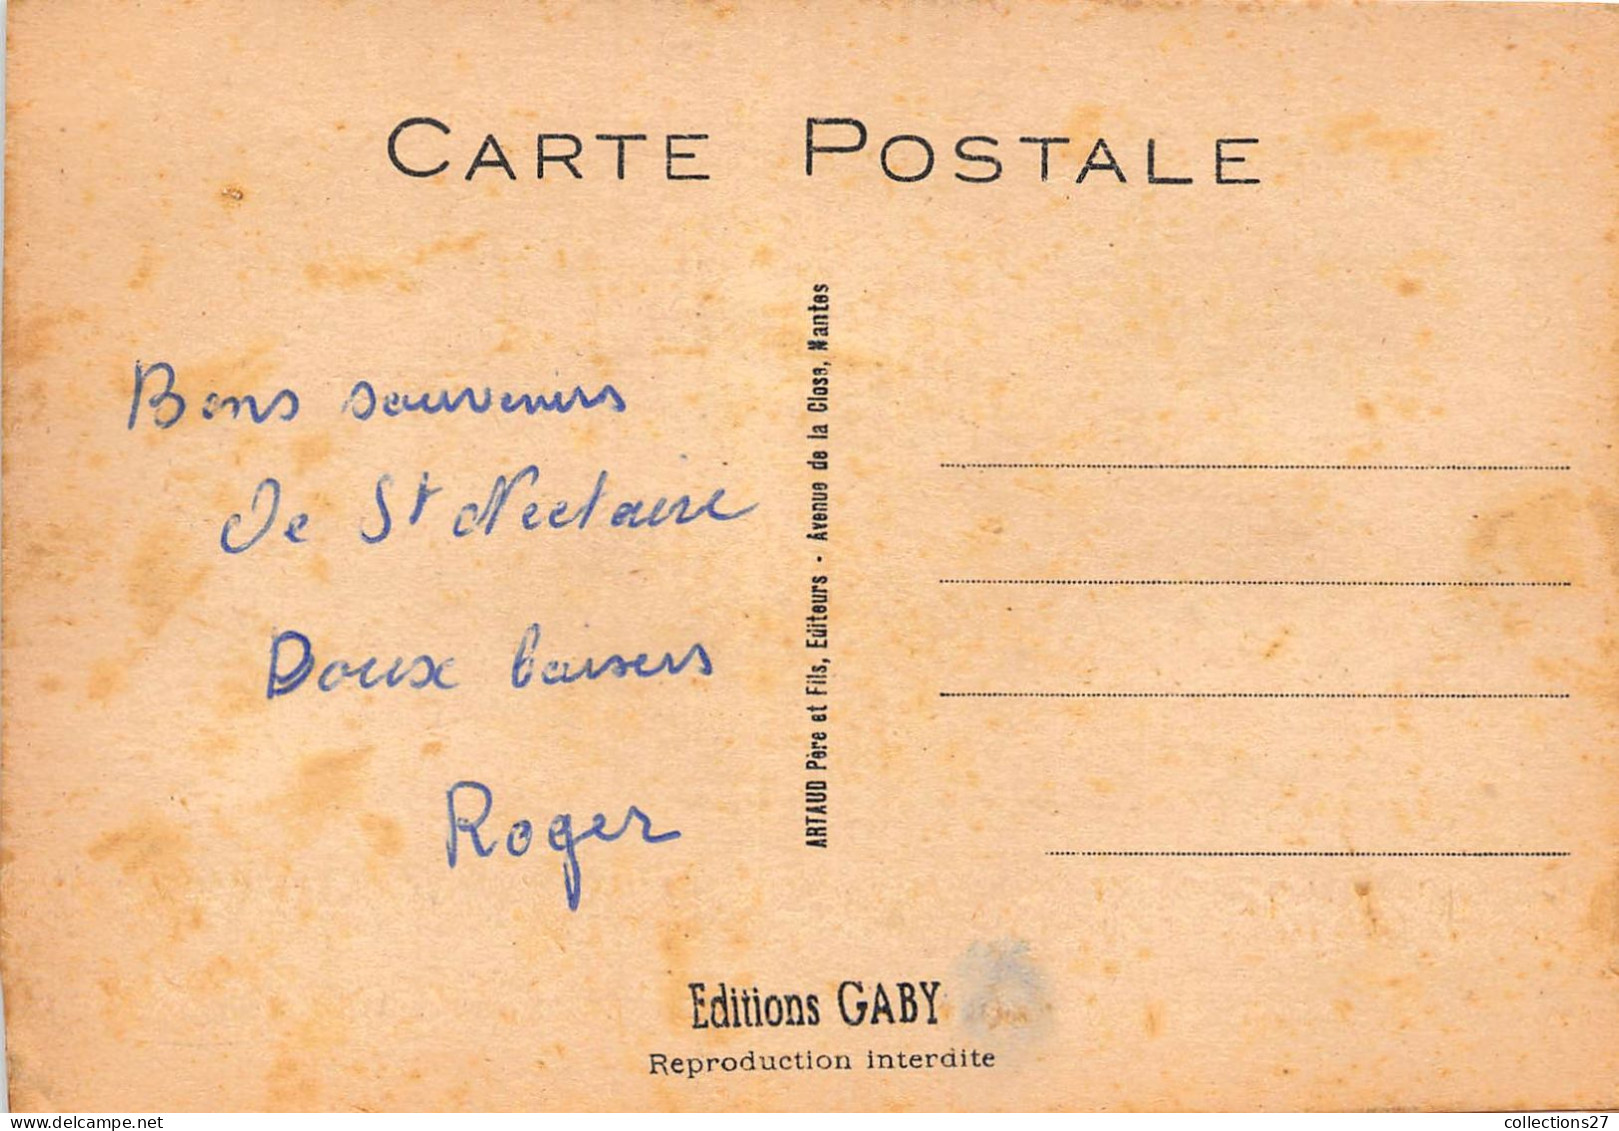 CARTE POSTALE
Bons souvenirs
de St Nectaire
Doux baisers
Roger
ARTAUD Père et Fils, Editeurs - Avenue de la Close, Nantes
Editions GABY
Reproduction interdite
collections27